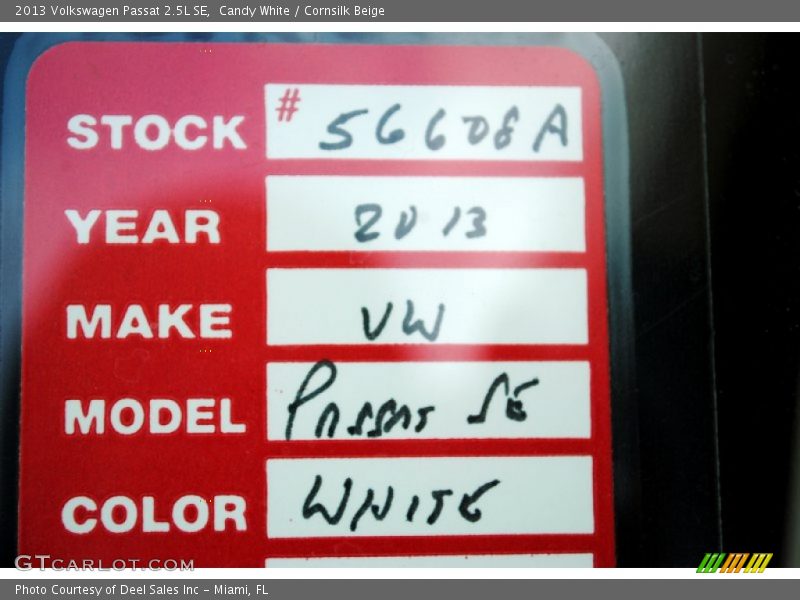 2013 Volkswagen Passat 2.5L SE, Candy White / Cornsilk Beige
STOCK # 56608A
YEAR 2013
MAKE VW
MODEL PASSAT SE
COLOR WHITE
GTCARLOT.COM
Photo Courtesy of Deel Sales Inc - Miami, FL